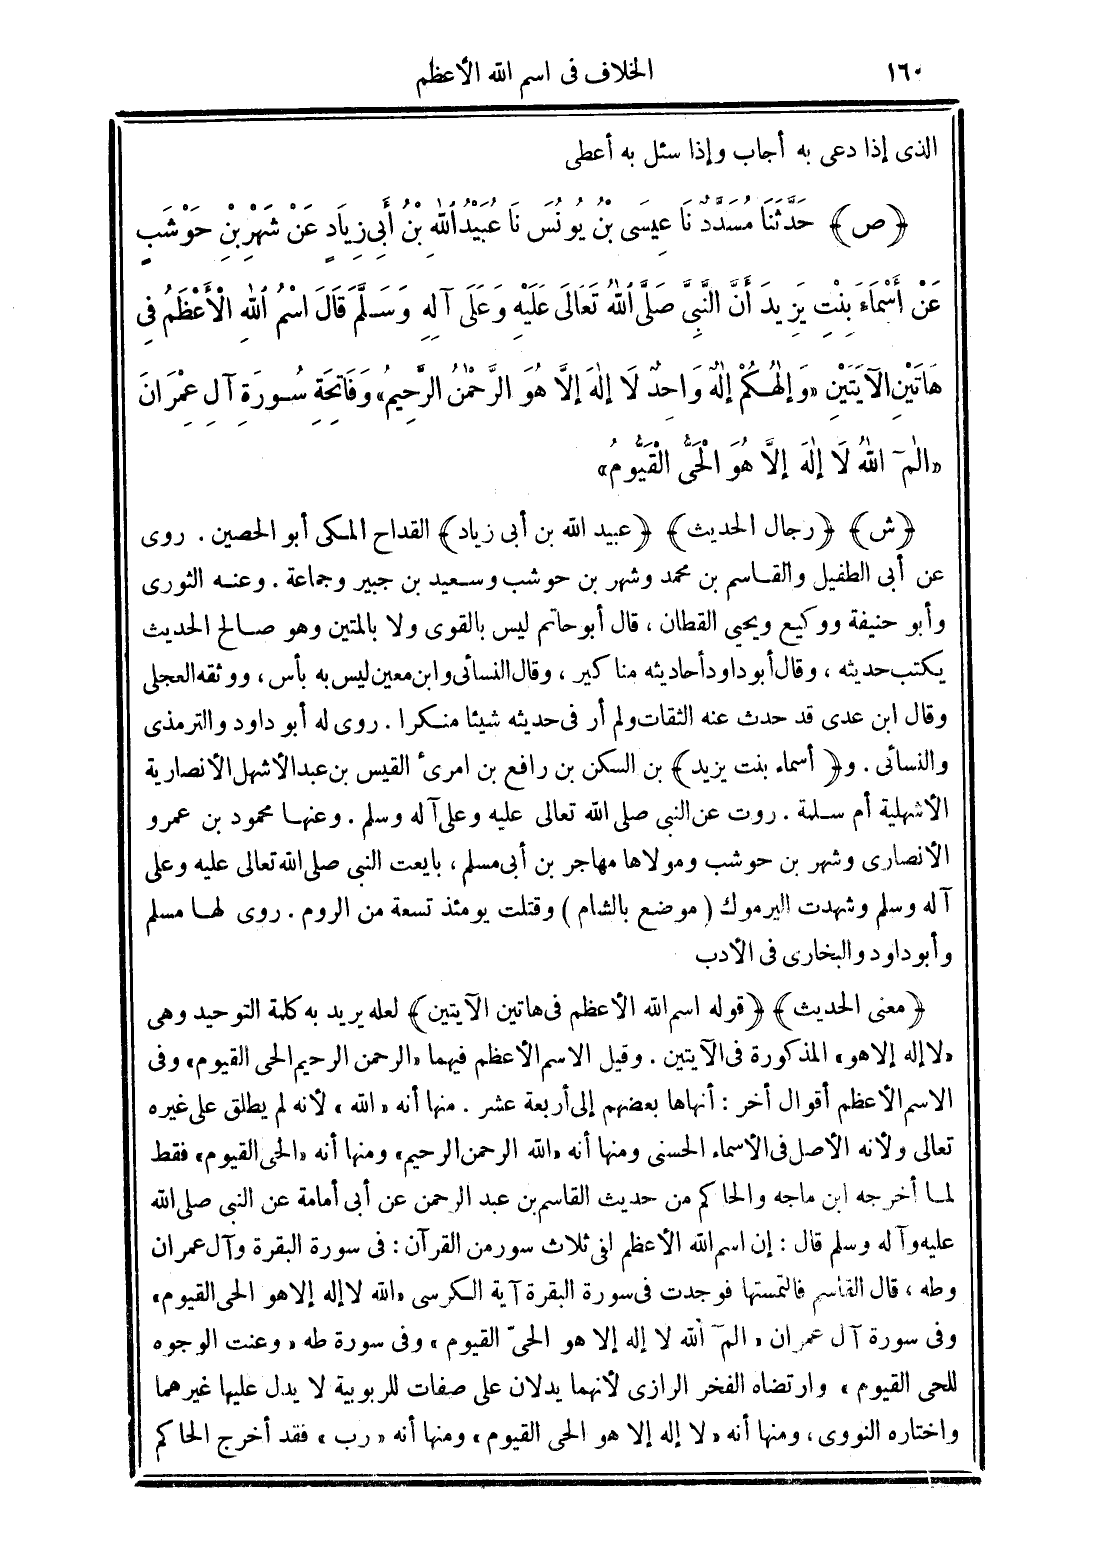 ١٦٠
الخلاف فى اسم الله الأعظم
الذى إذا دعى به أجاب وإذا سئل به أعطى
﴿ص﴾ حَدَّثَنَا مُسَدَّدٌ نَا عِيسَى بْنُ يُونُسَ نَا عُبَيْدُ اللهِ بْنُ أَبِى زِيَادٍ عَنْ شَهْرِ بْنِ حَوْشَبٍ
عَنْ أَسْمَاءَ بِنْتِ يَزِيدَ أَنَّ النَّبِىَّ صَلَّى اللهُ تَعَالَى عَلَيْهِ وَعَلَى آلِهِ وَسَلَّمَ قَالَ اسْمُ اللهِ الْأَعْظَمُ فِى
هَاتَيْنِ الْآيَتَيْنِ «وَإِلٰهُكُمْ إِلٰهٌ وَاحِدٌ لَا إِلٰهَ إِلَّا هُوَ الرَّحْمٰنُ الرَّحِيمُ» وَفَاتِحَةِ سُورَةِ آلِ عِمْرَانَ
«الٓمٓ اللهُ لَا إِلٰهَ إِلَّا هُوَ الْحَىُّ الْقَيُّومُ»
﴿ش﴾ ﴿رجال الحديث﴾ ﴿عبيد الله بن أبى زياد﴾ القداح المكى أبو الحصين . روى
عن أبى الطفيل والقاسم بن محمد وشهر بن حوشب وسعيد بن جبير وجماعة . وعنه الثورى
وأبو حنيفة ووكيع ويحيى القطان ، قال أبو حاتم ليس بالقوى ولا بالمتين وهو صالح الحديث
يكتب حديثه ، وقال أبو داود أحاديثه مناكير ، وقال النسائى وابن معين ليس به بأس ، ووثقه العجلى
وقال ابن عدى قد حدث عنه الثقات ولم أر فى حديثه شيئا منكرا . روى له أبو داود والترمذى
والنسائى . و﴿أسماء بنت يزيد﴾ بن السكن بن رافع بن امرئ القيس بن عبد الأشهل الأنصارية
الأشهلية أم سلمة . روت عن النبى صلى الله تعالى عليه وعلى آله وسلم . وعنها محمود بن عمرو
الأنصارى وشهر بن حوشب ومولاها مهاجر بن أبى مسلم ، بايعت النبى صلى الله تعالى عليه وعلى
آله وسلم وشهدت اليرموك (موضع بالشام) وقتلت يومئذ تسعة من الروم . روى لها مسلم
وأبو داود والبخارى فى الأدب
﴿معنى الحديث﴾ ﴿قوله اسم الله الأعظم فى هاتين الآيتين﴾ لعله يريد به كلمة التوحيد وهى
«لا إله إلا هو» المذكورة فى الآيتين . وقيل الاسم الأعظم فيهما «الرحمن الرحيم الحى القيوم» وفى
الاسم الأعظم أقوال أخر : أنهاها بعضهم إلى أربعة عشر . منها أنه «الله» لأنه لم يطلق على غيره
تعالى ولأنه الأصل فى الأسماء الحسنى ومنها أنه «الله الرحمن الرحيم» ومنها أنه «الحى القيوم» فقط
لما أخرجه ابن ماجه والحاكم من حديث القاسم بن عبد الرحمن عن أبى أمامة عن النبى صلى الله
عليه وآله وسلم قال : إن اسم الله الأعظم لفى ثلاث سور من القرآن : فى سورة البقرة وآل عمران
وطه ، قال القاسم فالتمستها فوجدت فى سورة البقرة آية الكرسى «الله لا إله إلا هو الحى القيوم»
وفى سورة آل عمران «الٓمٓ الله لا إله إلا هو الحىّ القيوم» وفى سورة طه «وعنت الوجوه
للحى القيوم» وارتضاه الفخر الرازى لأنهما يدلان على صفات للربوبية لا يدل عليها غيرهما
واختاره النووى ، ومنها أنه «لا إله إلا هو الحى القيوم» ومنها أنه «رب» فقد أخرج الحاكم